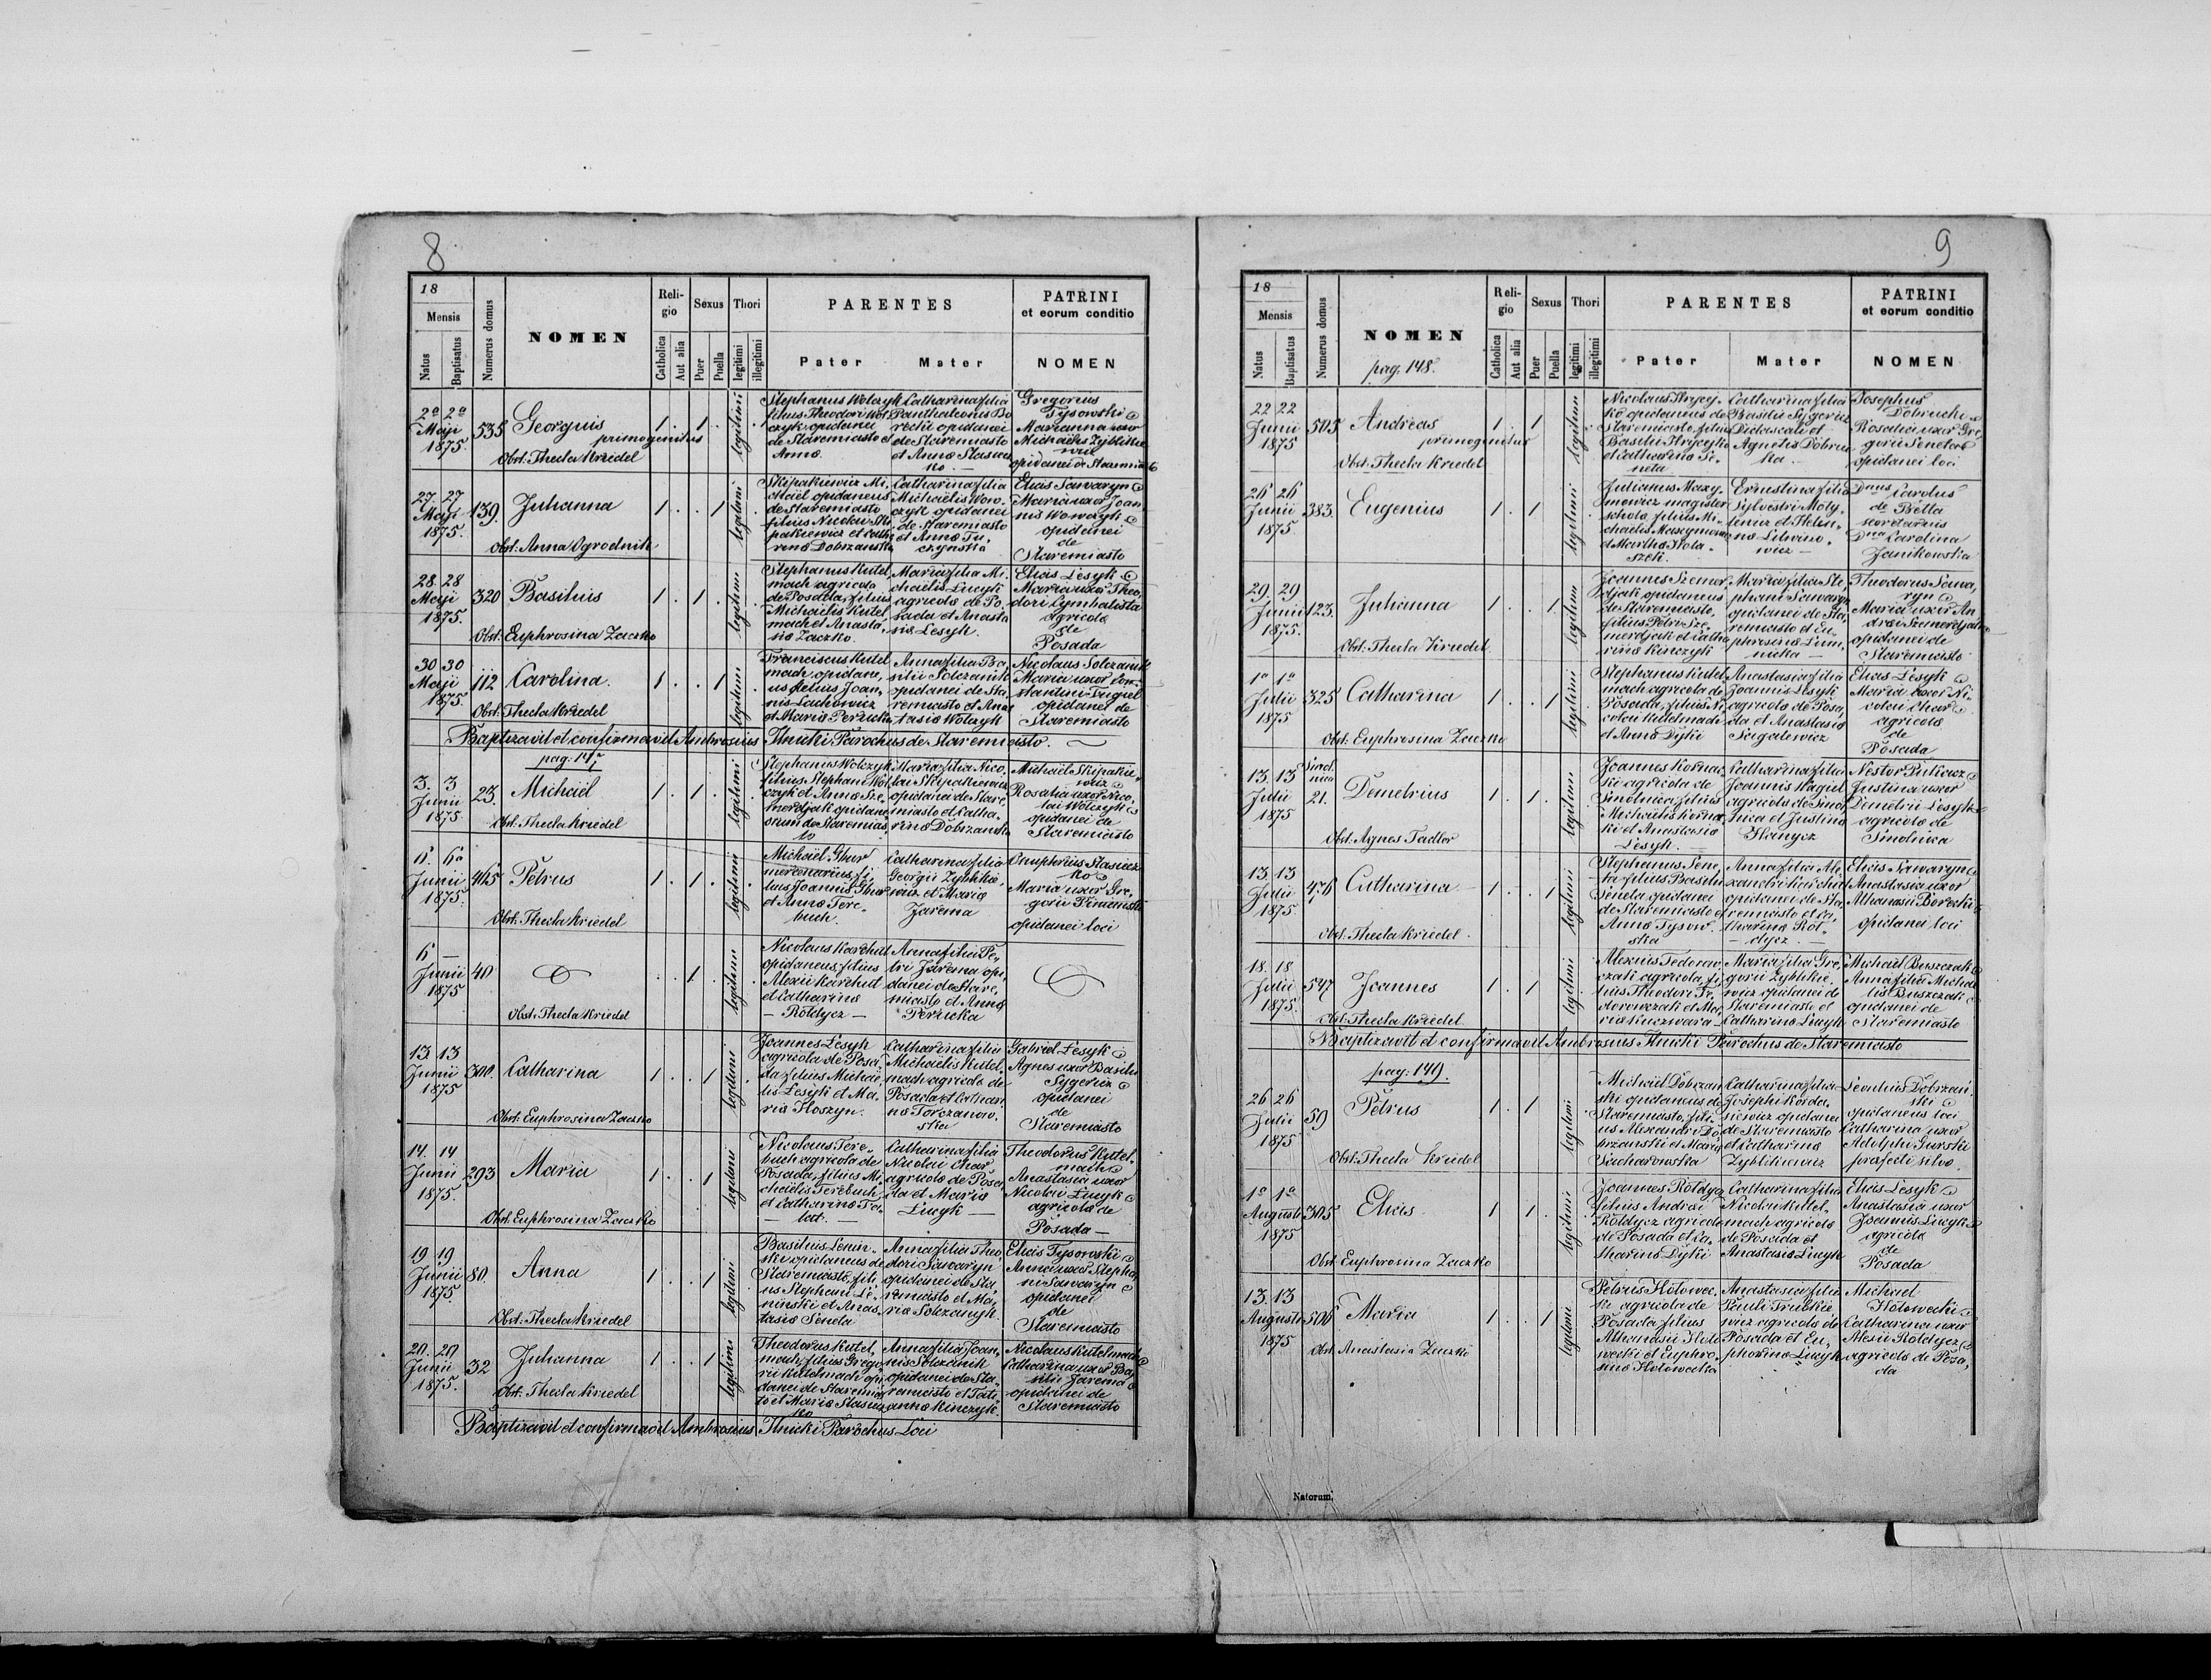 8
18
Mensis
Natus
Baptisatus
Numerus domus
NOMEN
Reli-
gio
Catholica
Aut alia
Sexus
Puer
Puella
Thori
legitimi
illegitimi
PARENTES
Pater
Mater
PATRINI
et eorum conditio
NOMEN
2a 2a
Maji
1875.
535
Georgius
primogenitus
Obst: Thecla Kriedel
1 . 1 .
legitimi
Stephanus Wolczyk
filius Theodori Wol
czyk opidanei
de Staremiasto et
Anna
Catharina filia
Panthaleonis Bo
reckii opidanei
de Staremiasto
et Anna Stasiecz
ko. —
Gregorius
Tysowski
Marianna uxor
Michaëlis Zyblikie
wicz
opidanei de Staremiasto
27. 27
Maji
1875.
139.
Juhanna
Obst: Anna Ogrodnik
1 . . 1
legitimi
Skipakiewicz Mi-
chaël opidaneus
de Staremiasto
filius Nicolai Ski
pakiewicz et Catha
rena Dobrzanska
Catharina filia
Michaëlis Wow-
czyk opidanei
de Staremiasto
et Anna Tu-
czynska
Elias Sawaryn
Maria uxor Joan
nis Wowczyk
opidanei
de
Staremiasto
28. 28
Maji
1875.
320
Basilius
Obst: Euphrosina Zaczko
1 . 1 .
legitimi
Stephanus Kutel
mach agricola
de Posada, filius
Michaelis Kutel
mach et Anasta,
sia Zaczko.
Maria filia Mi.
chaëlis Lucyk
agricola de Po.
sada et Anasta
sia Lesyk.
Elias Lesyk
Maria uxor Theo,
dori Cymbalista
agricola
de
Posada
30 30
Maji
1875.
112
Carolina.
Obst: Thecla Kriedel
1 . . 1
legitimi
Franciscus Kutel
mach opidane,
us filius Joan,
nis Lachowicz
et Maria Perucka
Anna filia Ba,
silii Solczanik
opidanei de Sta,
remiasto et Anas
tasia Wolczyk
Nicolaus Solczanik
Maria uxor Con-
stantini Trigiel
opidanei de
Staremiasto
Baptizavit et confirmavit Ambrosius Ilnicki Parochus de Staremiasto.
pag: 147
3. 3
Junii
1875.
23.
Michaël
Obst: Thecla Kriedel
1 . 1 .
legitimi
Stephanus Wolczyk
filius Stephani Wol,
czyk et Anna Sze,
merdjak opidane
orum de Staremias
to
Maria filia Nico,
lai Skipakiewicz
opidanei de Stare,
miasto et Catha,
rina Dobrzanska
Michaël Skipakie-
wicz
Rosalia uxor Nico,
lai Wolczyk
opidanei de
Staremiasto
6. 6a
Junii
1875.
465
Petrus
Obst: Thecla Kriedel
1 . 1 .
legitimi
Michaël Ghur
mercenarius, fi,
lius Joannis Ghur
et Anna Tere-
buch.
Catharina filia
Georgii Zyblikie,
wicz et Maria
Jarema
Onuphrius Stasiecz
ko
Maria uxor Gre,
gorii
opidanei loci
6 —
Junii
1875
40
Obst: Thecla Kriedel
. . 1 .
legitimi
Nicolaus Karchut
opidaneus, filius
Alexii Karchut
et Catharina
— Roldycz —
Anna filia Pe-
tri Jarema opi,
danei de Stare,
miasto et Anna
Perucka
13. 13
Junii
1875
300.
Catharina
Obst: Euphrosina Zaczko
1 . . 1
legitimi
Joannes Lesyk
agricola de Posa,
da filius Michaë,
lis Lesyk et Ma,
ria Hoszyn.
Catharina filia
Michaëlis Kutel,
mach agricola de
Posada et Cathari
na Torczanow.
ska
Gabriel Lesyk
Agnes uxor Basilii
Sygericz
opidanei
de
Staremiasto
14. 14
Junii
1875.
293
Maria
Obst: Euphrosina Zaczko
1 . . 1
legitimi
Nicolaus Tere-
buch agricola de
Posada, filius Mi,
chaëlis Terebuch
et Catharina Ta-
— lat. —
Catharina filia
Nicolai Char
agricola de Posa
da et Maria
Lucyk —
Theodorus Kutel-
mach
Anastasia uxor
Nicolai Lucyk
agricola de
Posada —
19 19
Junii
1875.
80.
Anna
Obst: Thecla Kriedel
1 . . 1
legitimi
Basilius Lenin-
ski opidaneus de
Staremiasto, fili-
us Stephani Le-
ninski et Anas-
tasia Seneta
Anna filia Theo,
dori Sawaryn
opidanei de Sta,
remiasto et Ma,
ria Solczanyk
Elias Tysowski
Anna uxor Stepha
ni Sawaryn
opidanei
de
Staremiasto
20. 20
Junii
1875.
32
Juhanna
Obst: Thecla Kriedel
1 . . 1
legitimi
Theodorus Kutel,
mach, filius Grego
rii Kutelmach opi
danei de Staremias
to et Maria Stasiecz
ko
Anna filia Joan,
nis Solczanik
opidanei de Sta,
remiasto et Tati,
anna Kinczyk.
Nicolaus Kutelmach
Catharina uxor Ba,
silii Jarema
opidanei de
Staremiasto
Baptizavit et confirmavit Ambrosius Ilnicki Parochus Loci
9
18
Mensis
Natus
Baptisatus
Numerus domus
NOMEN
pag: 148.
Reli-
gio
Catholica
Aut alia
Sexus
Puer
Puella
Thori
legitimi
illegitimi
PARENTES
Pater
Mater
PATRINI
et eorum conditio
NOMEN
22 22
Junii
1875
505
Andreas
primogenitus
Obst: Thecla Kriedel
1 . 1
legitimi
Nicolaus Hrycy-
ko opidaneus de
Staremiasto, filius
Basilii Hrycyko
et Catharina Se-
neta
Catharina filia
Basilii Sygericz
Didascali et
Agnetis Dobruc
ka. —
Josephus
Dobrucki
Rosalia uxor Gre
gorii Seneta
opidanei loci
26 26
Junii
1875
383.
Eugenius
1 . 1
legitimi
Julianus Maxy-
mowicz magister
schola, filius Mi-
chaëlis Maxymowicz
et Martha Hola-
szek.
Ernestina filia
Sylvestri Moly-
Litwino-
wicz —
Dnus Carolus
de Betta
secretarius
Dna Carolina
Janikowska
29. 29
Junii
1875.
123.
Juhanna
Obst: Thecla Kriedel.
1 . . 1
legitimi
Joannes Szemer
djak opidaneus
de Staremiasto,
filius Petri Sze-
merdjak et Catha
rina Kinczyk
Maria filia Ste,
phani Sawaryn
opidanei de Sta,
remiasto et Eu-
phrosina Lem,
nicka —
Theodorus Sawa,
ryn
Maria uxor An
drei Szemerdjak
opidanei de
Staremiasto
1a 1a
Julii
1875
325
Catharina
Obst: Euphrosina Zaczko
1 . . 1
legitimi
Stephanus Kutel
mach agricola de
Posada, filius Ni,
colai Kutelmach
et Anna Dyki
Anastasia filia
Joannis Lesyk
agricola de Posa,
da et Anastasia
Sagalewicz
Elias Lesyk
Maria uxor Ni-
colai Char
agricola
de
Posada
13. 13
Julii
1875
Smol
nica
21.
Demetrius
Obst: Agnes Tadler
1 . 1 .
legitimi
Joannes Kornac
ki agricola de
Smolnica, filius
Michaëlis Kornac
ki et Anastasia
Lesyk. —
Catharina filia
Joannis Magiel
agricola de Smol
nica et Justina
Hanycz
Nestor Pukacz
Justina uxor
Demetrii Lesyk
agricola de
Smolnica
13. 13
Julii
1875
476
Catharina —
Obst: Thecla Kriedel.
1 . — . 1
legitimi
Stephanus Sene
ta filius Basilii
Seneta opidanei
de Staremiasto et
Anna Tysow-
ska
Anna filia Ale
xandri Karchut
opidanei de Sta,
remiasto et Ca,
tharina Rol-
— dycz —
Elias Sawaryn
Anastasia uxor
Athanasii Borecki
opidanei loci
18. 18.
Julii
1875.
547
Joannes
Obst: Thecla Kriedel.
1 . 1
legitimi
Alexius Fedorow
czak agricola, fi,
lius Theodori Fe,
dorowczak et Ma,
ria Kuczwara
Maria filia Gre,
gorii Zyblikie
wicz opidanei de
Staremiasto et
Catharina Lucyk
Michaël Buszczak
Anna filia Michaë
lis Buszczak
opidanei de
Staremiasto
Baptizavit et confirmavit Ambrosius Ilnicki Parochus de Staremiasto
pag: 149.
26 26
Julii
1875
59
Petrus
Obst: Thecla Kriedel
1 . 1
legitimi
Michaël Dobrzan
ski opidaneus de
Staremiasto, fili-
us Alexandri Do
brzanski et Maria
Sacharowska
Catharina filia
Josephi Korda,
siewicz opidanei
de Staremiasto
et Catharina
Zyblikiewicz
Leontius Dobrzań
ski
opidaneus loci
Catharina uxor
Adolphi Gurski
præfecti silva.
1a 1a
Augusti
1875
305
Elias.
Obst: Euphrosina Zaczko
1 . 1
legitimi
Joannes Roldycz
filius Andrei
Roldycz agricola
de Posada et Ca,
tharina Dyki
Catharina filia
Nicolai Kutel,
mach agricola
de Posada et
Anastasia Lucyk
Elias Lesyk
Anastasia uxor
Joannis Lucyk
agricola
de
Posada
13. 13
Augusti
1875
506
Maria
Obst: Anastasia Zaczko
1 . . 1
legitimi
Petrus Hołowec.
ki agricola de
Posada filius
Athanasii Holo
wecki et Euphro-
sina Holowecka
Anastasia filia
Pauli Truskie,
wicz agricola de
Posada et Eu,
phrosina Lucyk
Michael
Hołowecki
Catharina uxor
Alexii Roldycz
agricola de Posa,
da
Natorum.